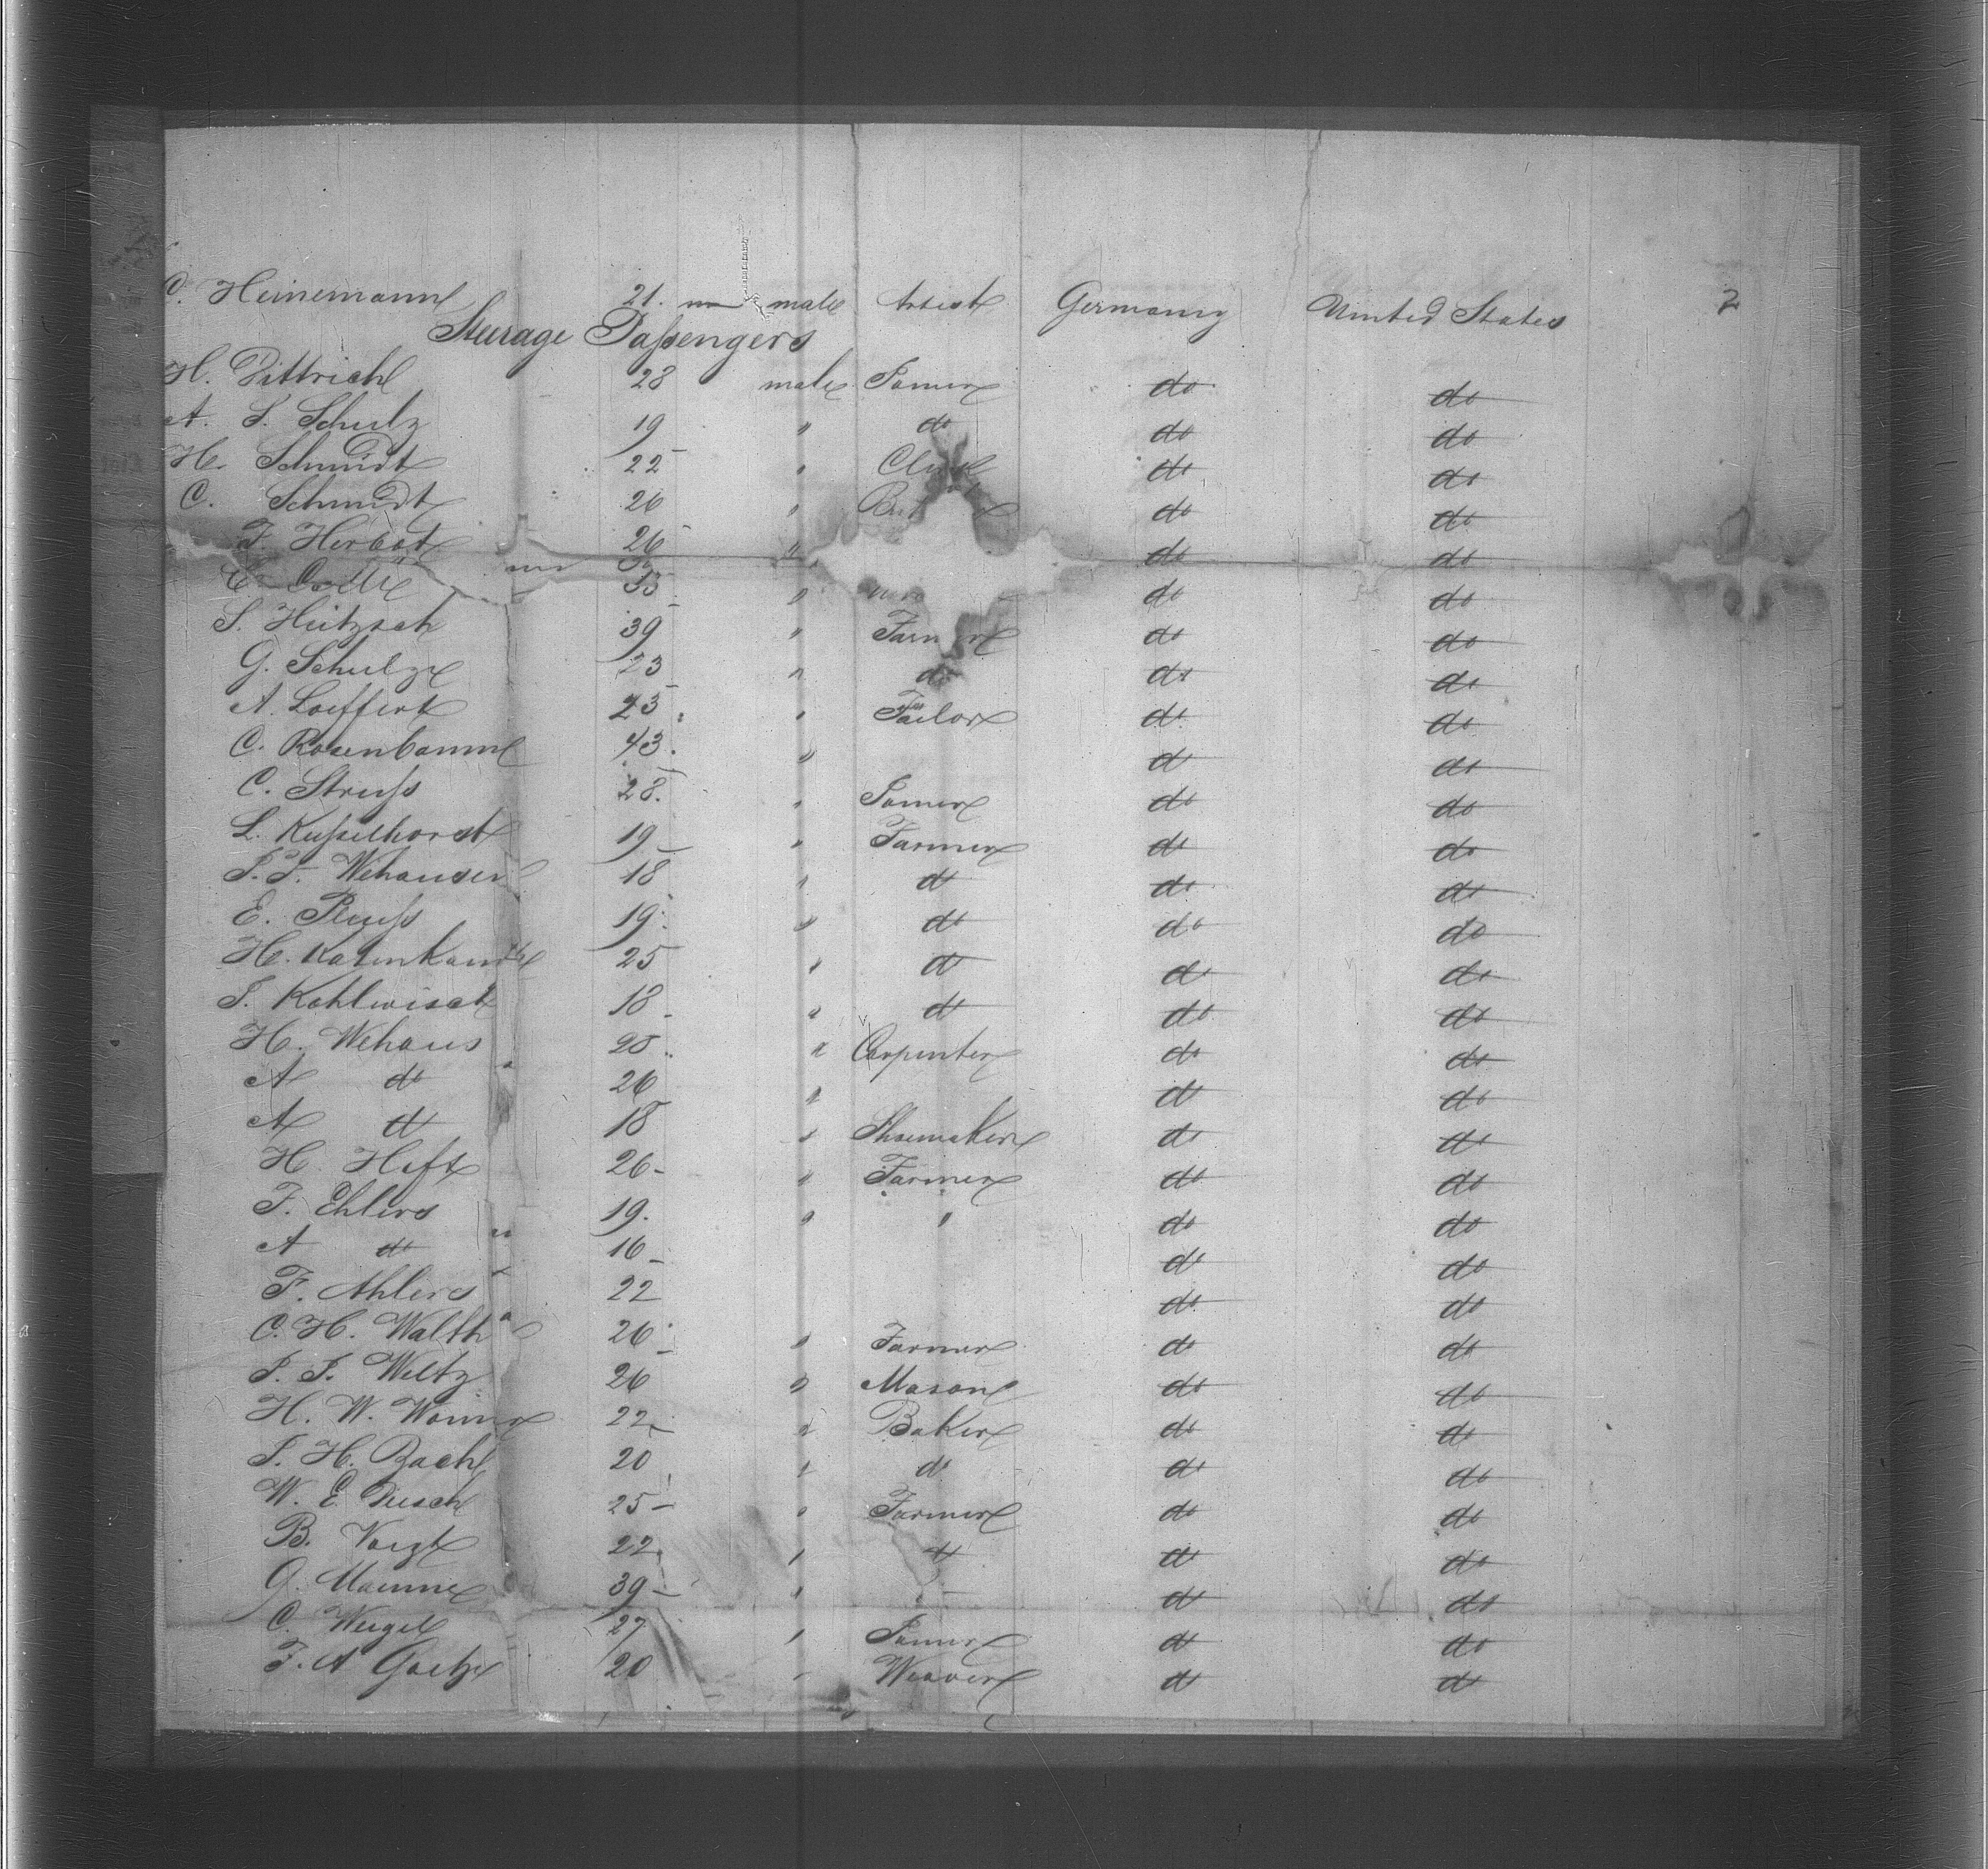 C. Heinemann 21. male Artist Germany United States 2
Steerage Passengers
H. Dittrich 28 male Joiner do do
A. F. Schulz 19 " do do do
H. Schmidt 22 " do do
C. Schmidt 26 " do do
F. Herbat 26 " do do
33 " do do
Heitzsch 39 " Farmer do do
G. Schulze 23 " do do do
A. Loeffert 23 " Tailor do do
C. Rosenbaum 43. " do do
C. Struss 28. " Joiner do do
L. Kusselhorst 19 " Farmer do do
J. F. Wehausen 18 " do do do
E. Preuss 19 " do do do
H. 25 " do do do
J. Kohlwisch 18 " do do do
H. Wehaus 28 " Carpenter do do
A do 26 " do do
A do 18 " Shoemaker do do
H. Heft 26 " Farmer do do
F. Ehlers 19. " " do do
A do 16 do do
F. Ahlers 22 do do
C. H. Walth 26 " Farmer do do
J. J. Weltz 26 " Mason do do
H. W. 22 " Baker do do
J. H. Bach 20 " do do do
W. E. 25 " Farmer do do
B. Voigt 22 " do do do
G. 39 " do do
C. Weigel 27 " Joiner do do
F. A Goetze 20 " Weaver do do